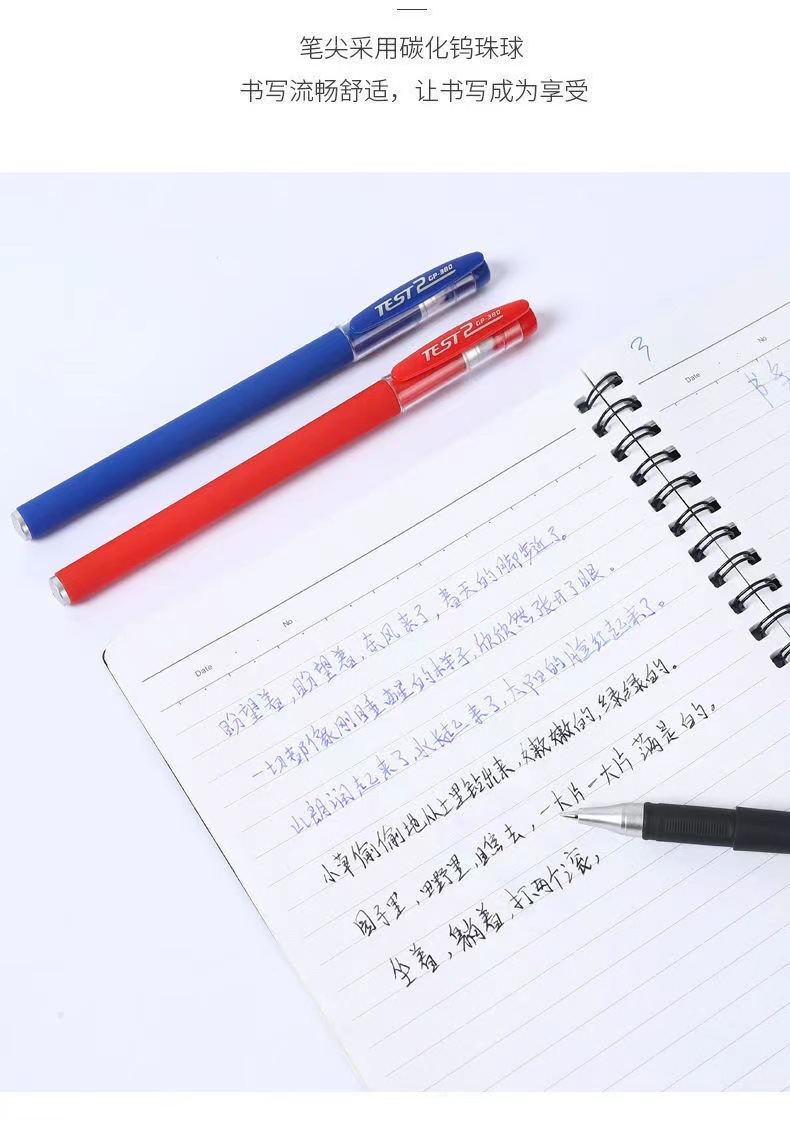 笔尖采用碳化钨珠球
书写流畅舒适，让书写成为享受
TEST 2 GP-380
TEST 2 GP-380
3
Date
No
书写
Date
No
盼望着，盼望着，东风来了，春天的脚步近了。
一切都像刚睡醒的样子，欣欣然张开了眼。
山朗润起来了，水长起来了，太阳的脸红起来了。
小草偷偷地从土里钻出来，嫩嫩的，绿绿的。
园子里，田野里，瞧去，一大片一大片满是的。
坐着，躺着，打两个滚，